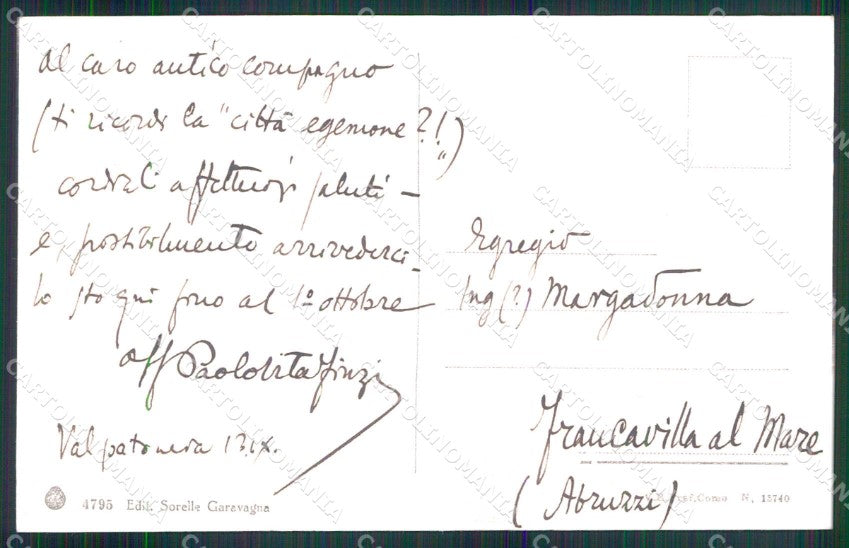 al caro antico compagno
(ti ricordi la "città egemone?!")
cordiali affettuosi saluti –
e, possibilmente arrivederci –
Io sto qui fino al 1º ottobre
aff Paolo Vita Finzi
13.IX.
Egregio
Ing (?) Margadonna
Francavilla al Mare
(Abruzzi)
4795 Edit. Sorelle Garavagna
N. 13740
CARTOLINOMANIA